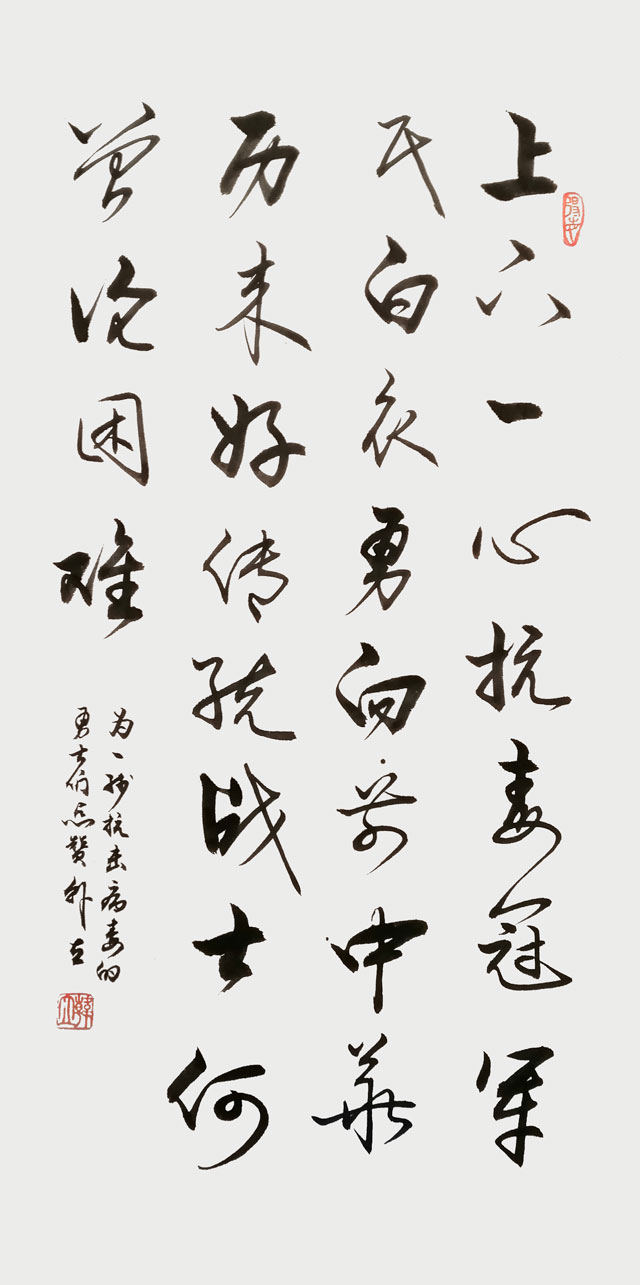 上下一心抗毒冠军
民白衣勇向前中华
历来好传统战士何
曾论困难
为一线抗击病毒的
勇士们点赞韩立